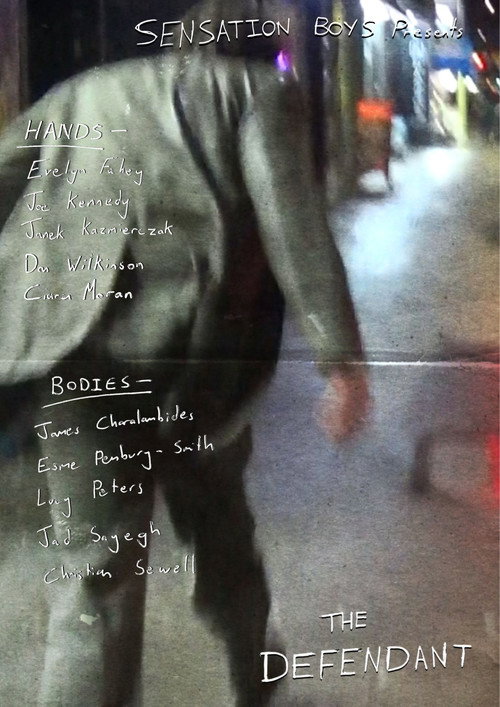 SENSATION BOYS Presents
HANDS —
Evelyn Fahey
Joe Kennedy
Janek Kazmierczak
Dan Wilkinson
Ciaran Moran
BODIES —
James Charalambides
Esme Penbury-Smith
Lucy Peters
Jad Sayegh
Christian Sewell
THE
DEFENDANT